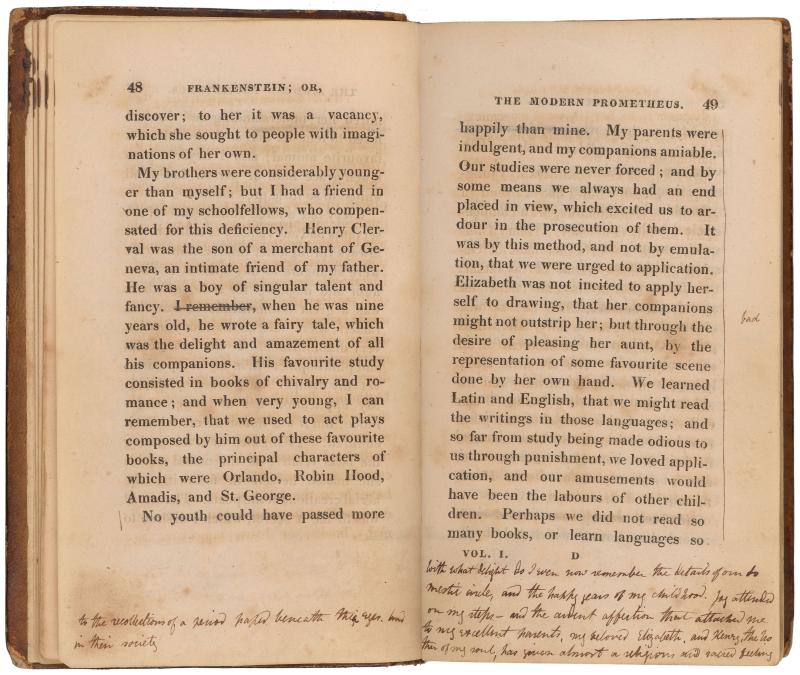 48 FRANKENSTEIN; OR,
discover; to her it was a vacancy,
which she sought to people with imagi-
nations of her own.
My brothers were considerably young-
er than myself; but I had a friend in
one of my schoolfellows, who compen-
sated for this deficiency. Henry Cler-
val was the son of a merchant of Ge-
neva, an intimate friend of my father.
He was a boy of singular talent and
fancy. I remember, when he was nine
years old, he wrote a fairy tale, which
was the delight and amazement of all
his companions. His favourite study
consisted in books of chivalry and ro-
mance; and when very young, I can
remember, that we used to act plays
composed by him out of these favourite
books, the principal characters of
which were Orlando, Robin Hood,
Amadis, and St. George.
No youth could have passed more
to the recollections of a period passed beneath their eyes and
in their society
THE MODERN PROMETHEUS. 49
happily than mine. My parents were
indulgent, and my companions amiable.
Our studies were never forced; and by
some means we always had an end
placed in view, which excited us to ar-
dour in the prosecution of them. It
was by this method, and not by emula-
tion, that we were urged to application.
Elizabeth was not incited to apply her-
self to drawing, that her companions
might not outstrip her; but through the
desire of pleasing her aunt, by the
representation of some favourite scene
done by her own hand. We learned
Latin and English, that we might read
the writings in those languages; and
so far from study being made odious to
us through punishment, we loved appli-
cation, and our amusements would
have been the labours of other chil-
dren. Perhaps we did not read so
many books, or learn languages so
VOL. I. D
bad
With what delight do I even now remember the details of our do
mestic circle, and the happy years of my childhood. Joy attended
on my steps – and the ardent affection that attached me
to my excellent parents, my beloved Elizabeth, and Henry, the bro
ther of my soul, has given almost a religious and sacred feeling